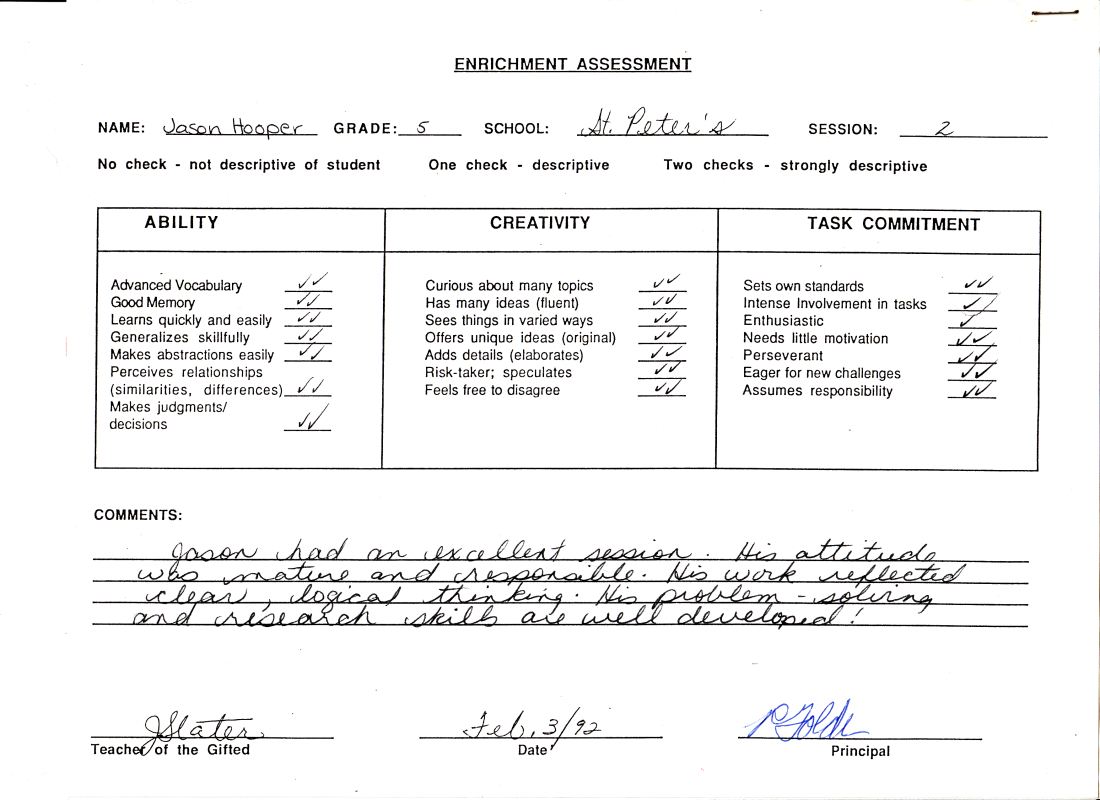 ENRICHMENT ASSESSMENT
NAME: Jason Hooper GRADE: 5 SCHOOL: St. Peter's SESSION: 2
No check - not descriptive of student One check - descriptive Two checks - strongly descriptive
ABILITY CREATIVITY TASK COMMITMENT
Advanced Vocabulary ✓✓ Curious about many topics ✓✓ Sets own standards ✓✓
Good Memory ✓✓ Has many ideas (fluent) ✓✓ Intense Involvement in tasks ✓✓
Learns quickly and easily ✓✓ Sees things in varied ways ✓✓ Enthusiastic ✓
Generalizes skillfully ✓✓ Offers unique ideas (original) ✓✓ Needs little motivation ✓✓
Makes abstractions easily ✓✓ Adds details (elaborates) ✓✓ Perseverant ✓✓
Perceives relationships Risk-taker; speculates ✓✓ Eager for new challenges ✓✓
(similarities, differences) ✓✓ Feels free to disagree ✓✓ Assumes responsibility ✓✓
Makes judgments/
decisions ✓✓
COMMENTS:
Jason had an excellent session. His attitude
was mature and responsible. His work reflected
clear, logical thinking. His problem-solving
and research skills are well developed!
JSlater Feb. 3/92
Teacher of the Gifted Date Principal